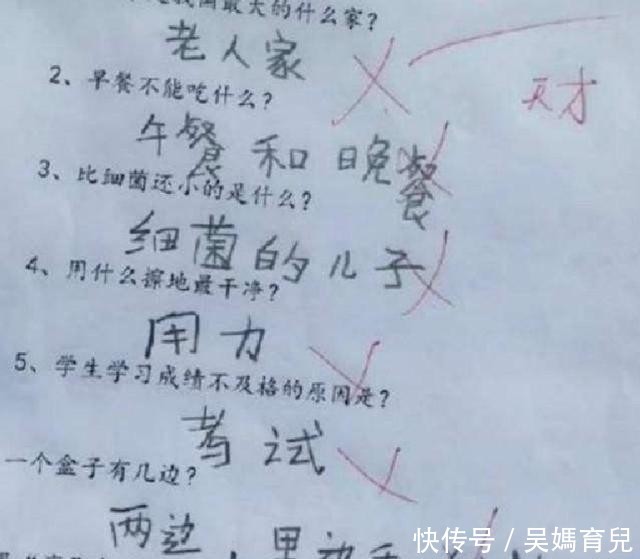 我国最大的什么家？
老人家
天才
2、早餐不能吃什么？
午餐和晚餐
3、比细菌还小的是什么？
细菌的儿子
4、用什么擦地最干净？
用力
5、学生学习成绩不及格的原因是？
考试
一个盒子有几边？
两边，里边
快传号 / 吴媽育兒